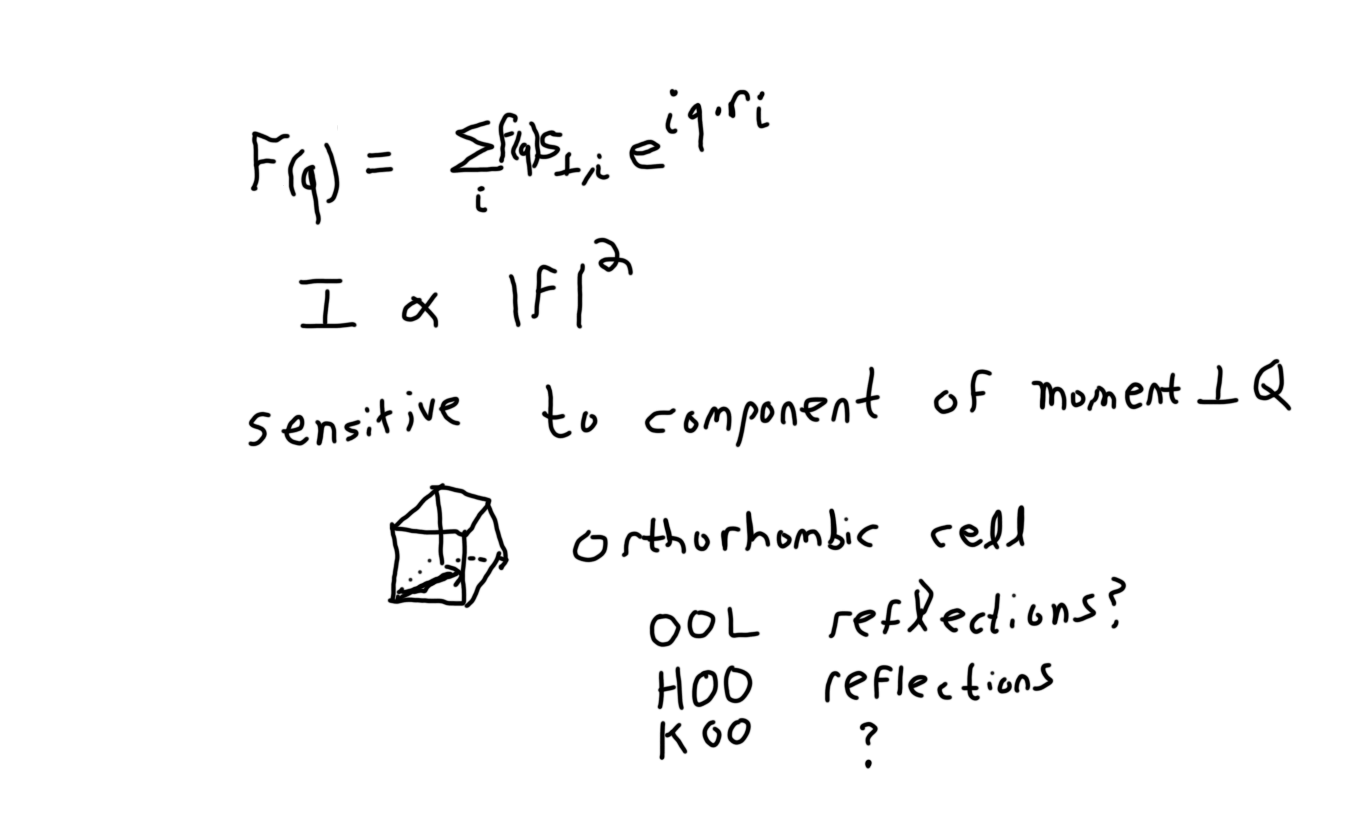 F(q) = ∑_i f(q)S_{⊥,i} e^{iq·r_i}
I ∝ |F|^2
sensitive to component of moment ⊥ Q
orthorhombic cell
OOL reflections?
HOO reflections
KOO ?